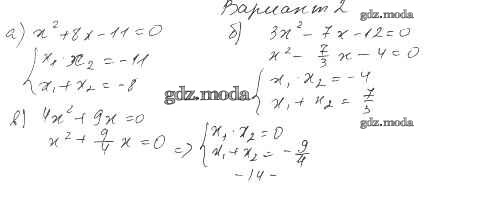 Вариант 2
gdz.moda
а) x² + 8x - 11 = 0
{ x₁ · x₂ = -11
x₁ + x₂ = -8
б) 3x² - 7x - 12 = 0
x² - 7/3 x - 4 = 0
{ x₁ · x₂ = -4
x₁ + x₂ = 7/3
gdz.moda
gdz.moda
в) 4x² + 9x = 0
x² + 9/4 x = 0 => { x₁ · x₂ = 0
x₁ + x₂ = - 9/4
- 14 -